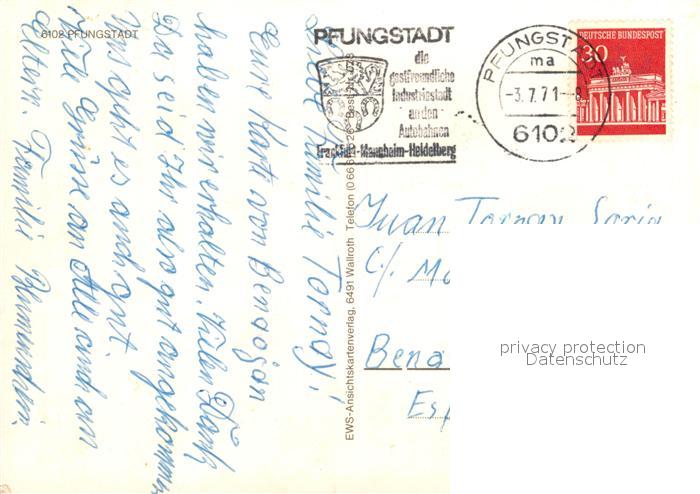 6102 PFUNGSTADT
Liebe Familie Tornay!
Eure Karte von Benaoján
haben wir erhalten. Vielen Dank,
Da seid Ihr also gut angekommen
Uns geht es auch gut.
Viele Grüsse an Alle auch an
Eltern. Familie
EWS-Ansichtskartenverlag, 6491 Wallroth Telefon (0 66
PFUNGSTADT
die
gastfreundliche
Industriestadt
an den
Autobahnen
Frankfurt-Mannheim-Heidelberg
PFUNGSTADT
ma
-3.7.71-8
6102
DEUTSCHE BUNDESPOST
30
Juan Tornay Soria
C/. Mo
Bena
Esp
privacy protection
Datenschutz